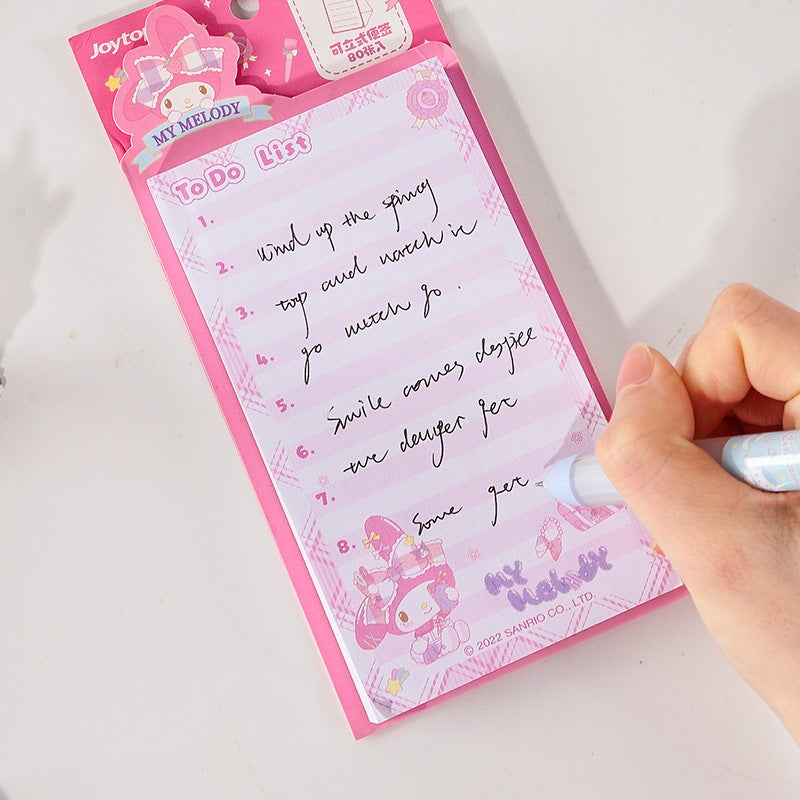 Joytop
可立式便签
80张入
MY MELODY
To Do List
1.
2. Wind up the spinny
3. top and watch it
4. go watch go.
5.
6. Smile comes despite
7. the danger get
8. Some get
MY
MELODY
© 2022 SANRIO CO., LTD.